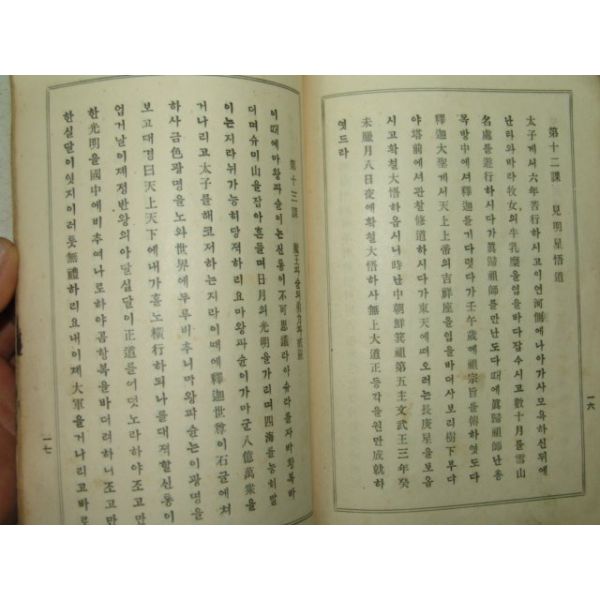 第十二課 見明星悟道
太子계서六年苦行하시고이연河側에나아가사모욕하신뒤에
난타와바라牧女의牛乳麋을입을바다잡수시고數十月를雪山
名處를遊行하시다가眞歸祖師를만난도다때에眞歸祖師난총
목방中에서釋迦를기다렷다가壬午歲에祖宗旨를傳하엿도다
釋迦大聖께서天上上帝의吉祥座을입을바더사보리樹下무다
야塔前에서관찰修道하시다가東天에떠오러는長庚星을보옵
시고확철大悟하옵시니時난中朝鮮箕祖第五主文武王三年癸
未臘月八日夜에확철大悟하사無上大道正等각을원만成就하
엿드라
一六
第十三課
이때에마왕파순이는신통이不可思議라아슈라를자바횡복하
더며슈미山을잡아흔들며日月의光明을가리며四海를능히발
이는지라뉘가능히당적하리요마왕파순이가마군八億萬衆을
거나리고太子를해코저하는지라이때에釋迦世尊이石굴에처
하사금色광명을노와世界에두루비추니마왕파순는이광명을
보고대경曰天上天下에내가홀노橫行하되나를대적할신통이
업거날이제정반왕의아달실달이正道를어덧노라하야조고만
한光明을國中에비추여나로하야곰항복을바더려하니조고만
한실달이잇지이러틋無禮하리요내이제大軍을거나리고바로
一七